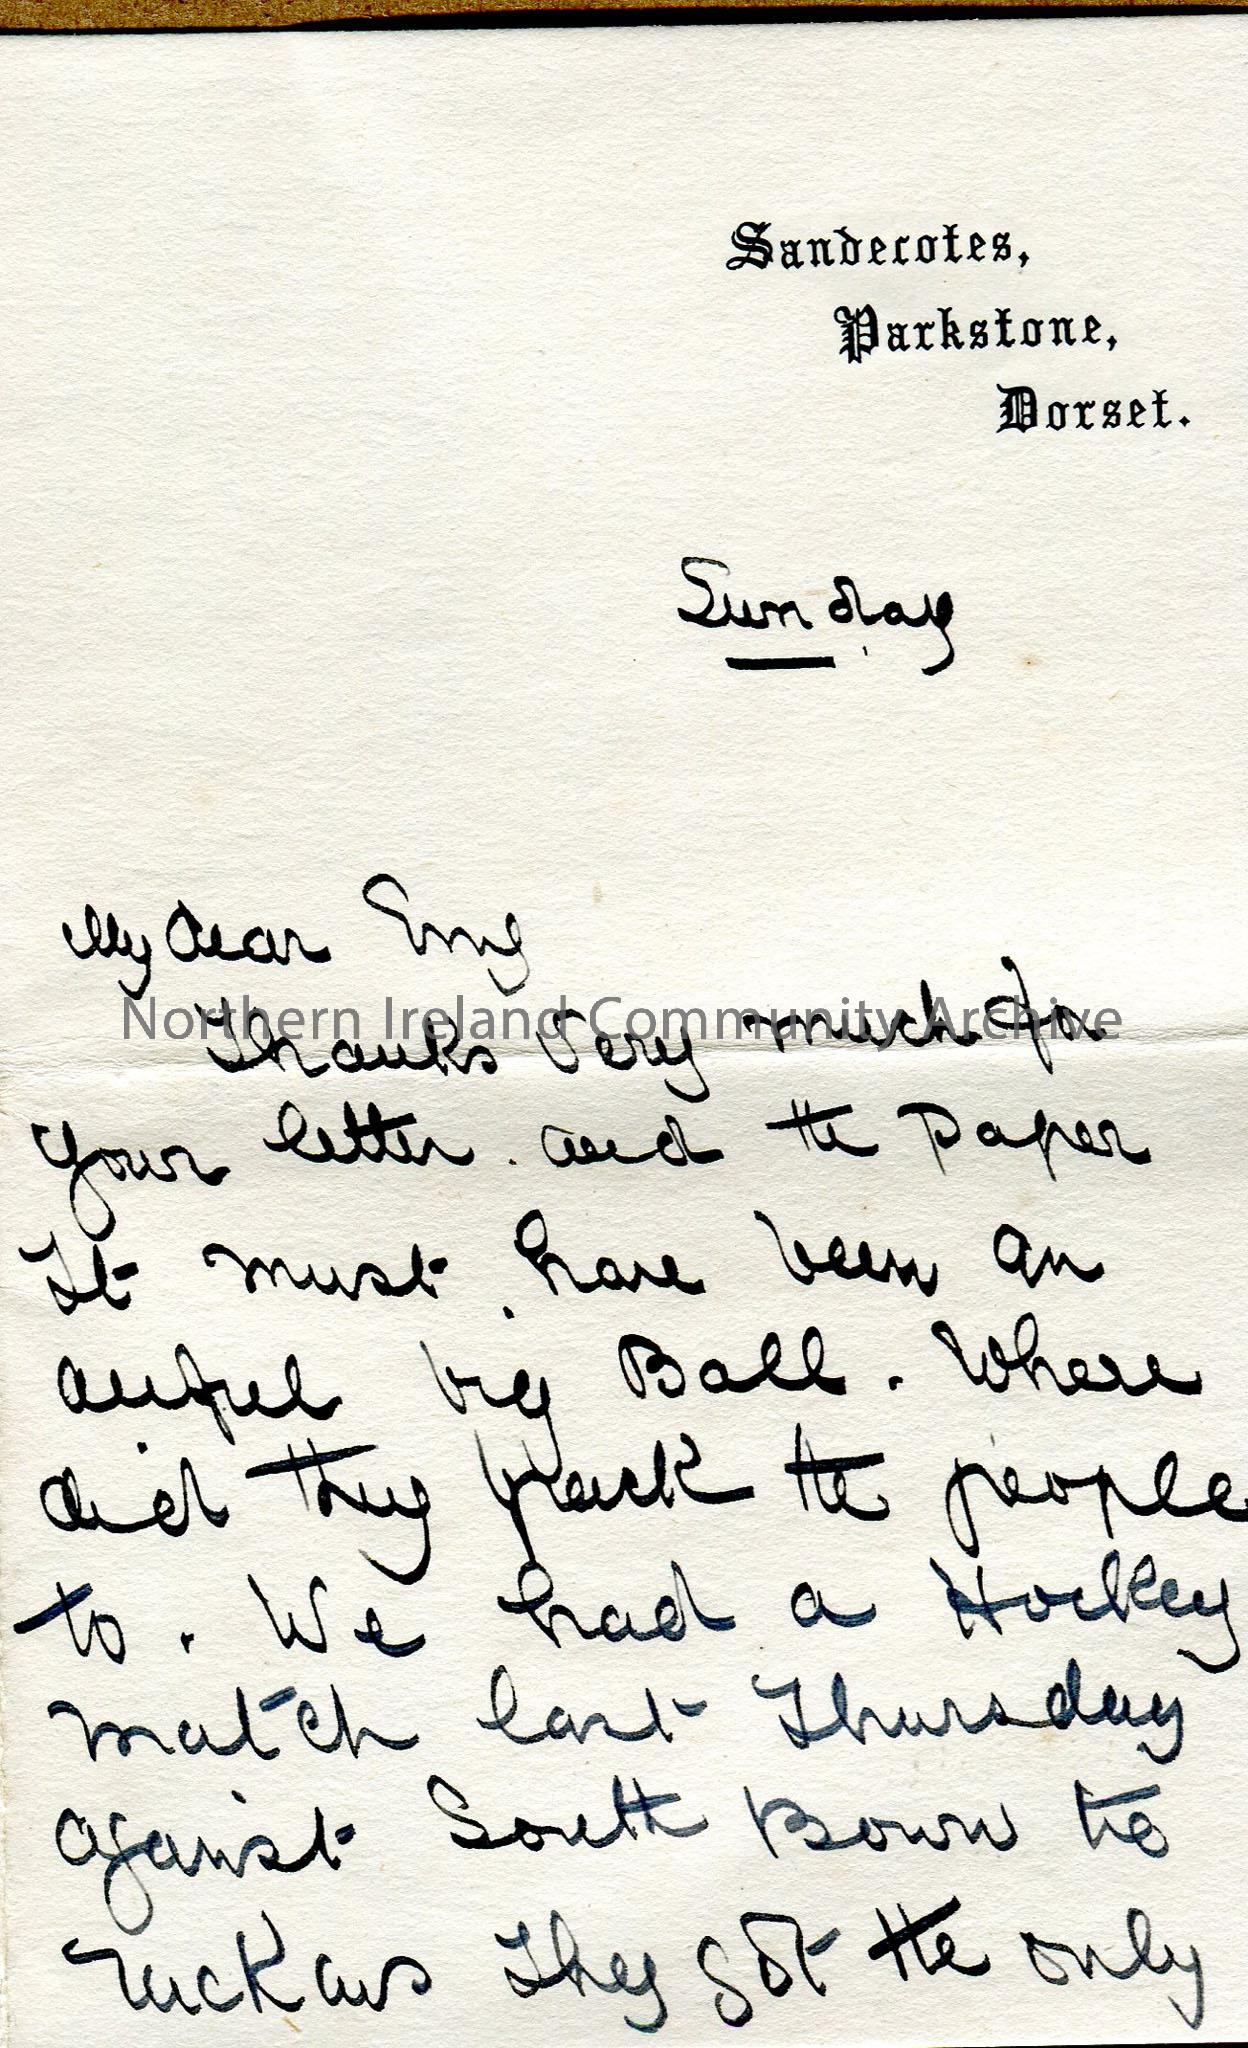 Sandecotes,
Parkstone,
Dorset.
Sunday
My dear Emy
Northern Ireland Community Archive
Thanks Very much for
your letter. and the Paper
It must have been an
awful big Ball. Where
did they pack the people
to. We had a Hockey
match last Thursday
against South Bourn
They got the only